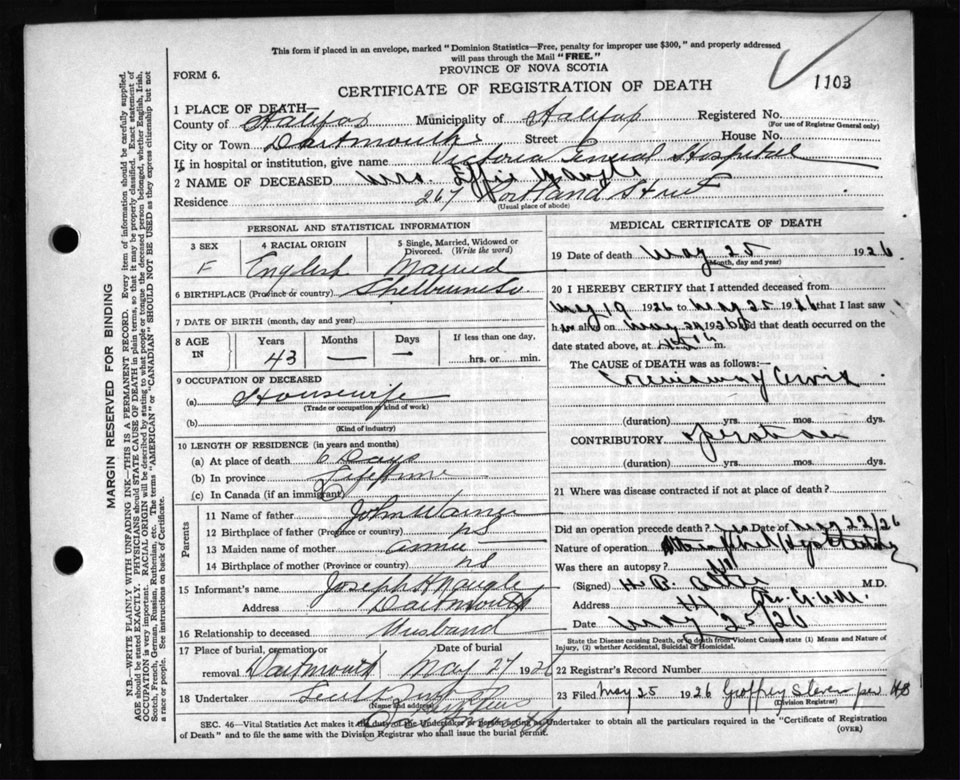 This form if placed in an envelope, marked "Dominion Statistics—Free, penalty for improper use $300," and properly addressed
will pass through the Mail "FREE."
FORM 6.
PROVINCE OF NOVA SCOTIA
1103
CERTIFICATE OF REGISTRATION OF DEATH
1 PLACE OF DEATH—
County of Halifax Municipality of Halifax Registered No.
(For use of Registrar General only)
City or Town Dartmouth Street House No.
If in hospital or institution, give name Victoria General Hospital
2 NAME OF DECEASED Mrs. Effie Naugle
Residence 267 Portland Street
(Usual place of abode)
PERSONAL AND STATISTICAL INFORMATION
3 SEX
F
4 RACIAL ORIGIN
English
5 Single, Married, Widowed or
Divorced. (Write the word)
Married
6 BIRTHPLACE (Province or country) Shelburne Co.
7 DATE OF BIRTH (month, day and year)
8 AGE
IN
Years
43
Months
—
Days
—
If less than one day,
hrs. or min.
9 OCCUPATION OF DECEASED
(a) Housewife
(Trade or occupation or kind of work)
(b)
(Kind of industry)
10 LENGTH OF RESIDENCE (in years and months)
(a) At place of death 6 Days
(b) In province Lifetime
(c) In Canada (if an immigrant)
Parents
11 Name of father John
12 Birthplace of father (Province or country) NS
13 Maiden name of mother Annie
14 Birthplace of mother (Province or country) NS
15 Informant's name Joseph H Naugle
Address Dartmouth
16 Relationship to deceased Husband
17 Place of burial, cremation or
removal Dartmouth
Date of burial
May 27 1926
18 Undertaker
(Name and address)
MEDICAL CERTIFICATE OF DEATH
19 Date of death May 25 1926
(Month, day and year)
20 I HEREBY CERTIFY that I attended deceased from
May 19 1926 to May 25 1926 that I last saw
h alive on May 24 1926 and that death occurred on
date stated above, at m.
The CAUSE of DEATH was as follows:
Cervix
(duration) yrs. mos. dys.
CONTRIBUTORY Operation
(duration) yrs. mos. dys.
21 Where was disease contracted if not at place of death?
Did an operation precede death? yes Date of May 22/26
Nature of operation
Was there an autopsy?
(Signed) H. B. M.D.
Address
Date May 25/26
State the Disease causing Death, or in death from Violent Causes state (1) Means and Nature of
Injury, (2) whether Accidental, Suicidal or Homicidal.
22 Registrar's Record Number
23 Filed May 25 1926 Geoffrey Stevens per HB
(Division Registrar)
SEC. 46—Vital Statistics Act makes it the duty of the Undertaker or person acting as Undertaker to obtain all the particulars required in the "Certificate of Registration
of Death" and to file the same with the Division Registrar who shall issue the burial permit.
(OVER)
MARGIN RESERVED FOR BINDING
N.B.—WRITE PLAINLY WITH UNFADING INK—THIS IS A PERMANENT RECORD. Every item of information should be carefully supplied.
AGE should be stated EXACTLY. PHYSICIANS should STATE CAUSE OF DEATH in plain terms, so that it may be properly classified. Exact statement of
OCCUPATION is very important. RACIAL ORIGIN will be described by stating to what people or tongue the deceased person belonged, whether English, Irish,
Scotch, French, German, Russian, Ruthenian, etc. The terms "AMERICAN" or "CANADIAN" SHOULD NOT BE USED as they express citizenship but not
a race or people. See instructions on back of Certificate.